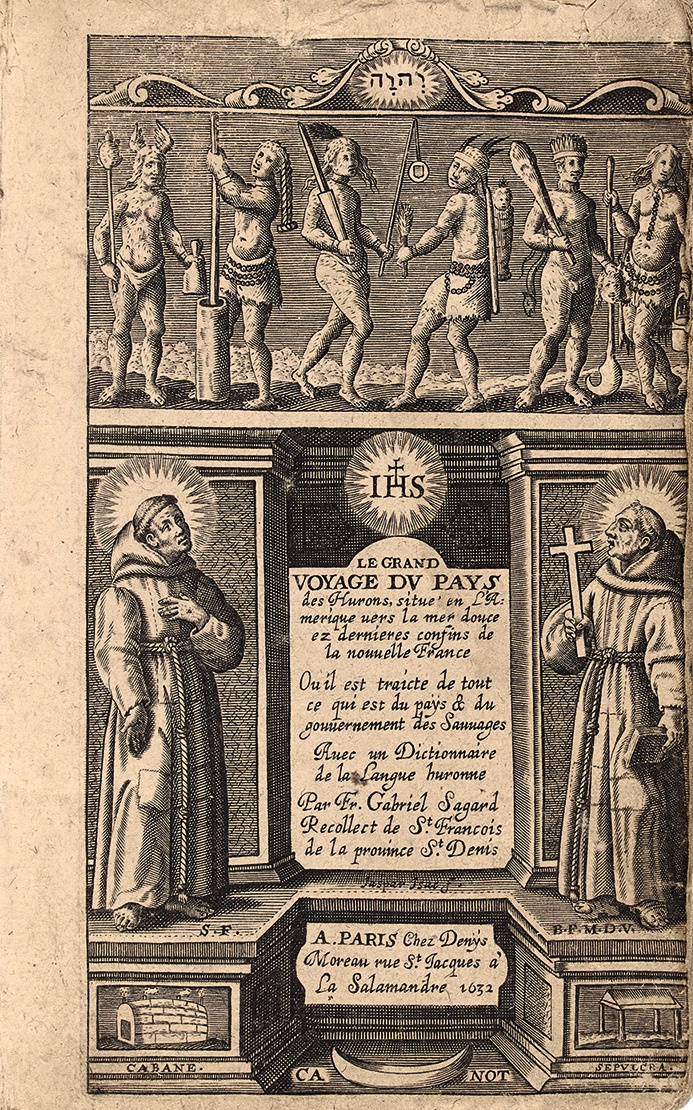 יְהוָה
IHS
LE GRAND
VOYAGE DV PAYS
des Hurons, situé en L'A-
merique vers la mer douce
ez dernieres confins de
la nouuelle France
Ou il est traicte de tout
ce qui est du pays & du
gouuernement des Sauuages
Auec un Dictionnaire
de la Langue huronne
Par Fr. Gabriel Sagard
Recollect de St. François
de la prouince St. Denis
Jaspar Isac f.
S.F.
B.F.M.D.V.
A. PARIS Chez Denys
Moreau rue St. Jacques a
La Salamandre 1632
CABANE.
CA NOT
SEPVLCRA.